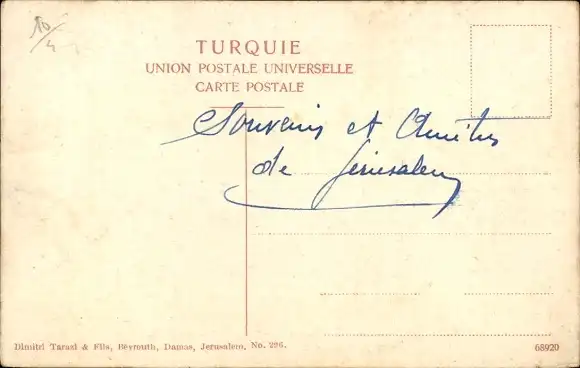 10/4
TURQUIE
UNION POSTALE UNIVERSELLE
CARTE POSTALE
Souvenirs et Amitiés
de Jérusalem
Dimitri Tarazi & Fils, Beyrouth, Damas, Jerusalem, No. 296.
68920